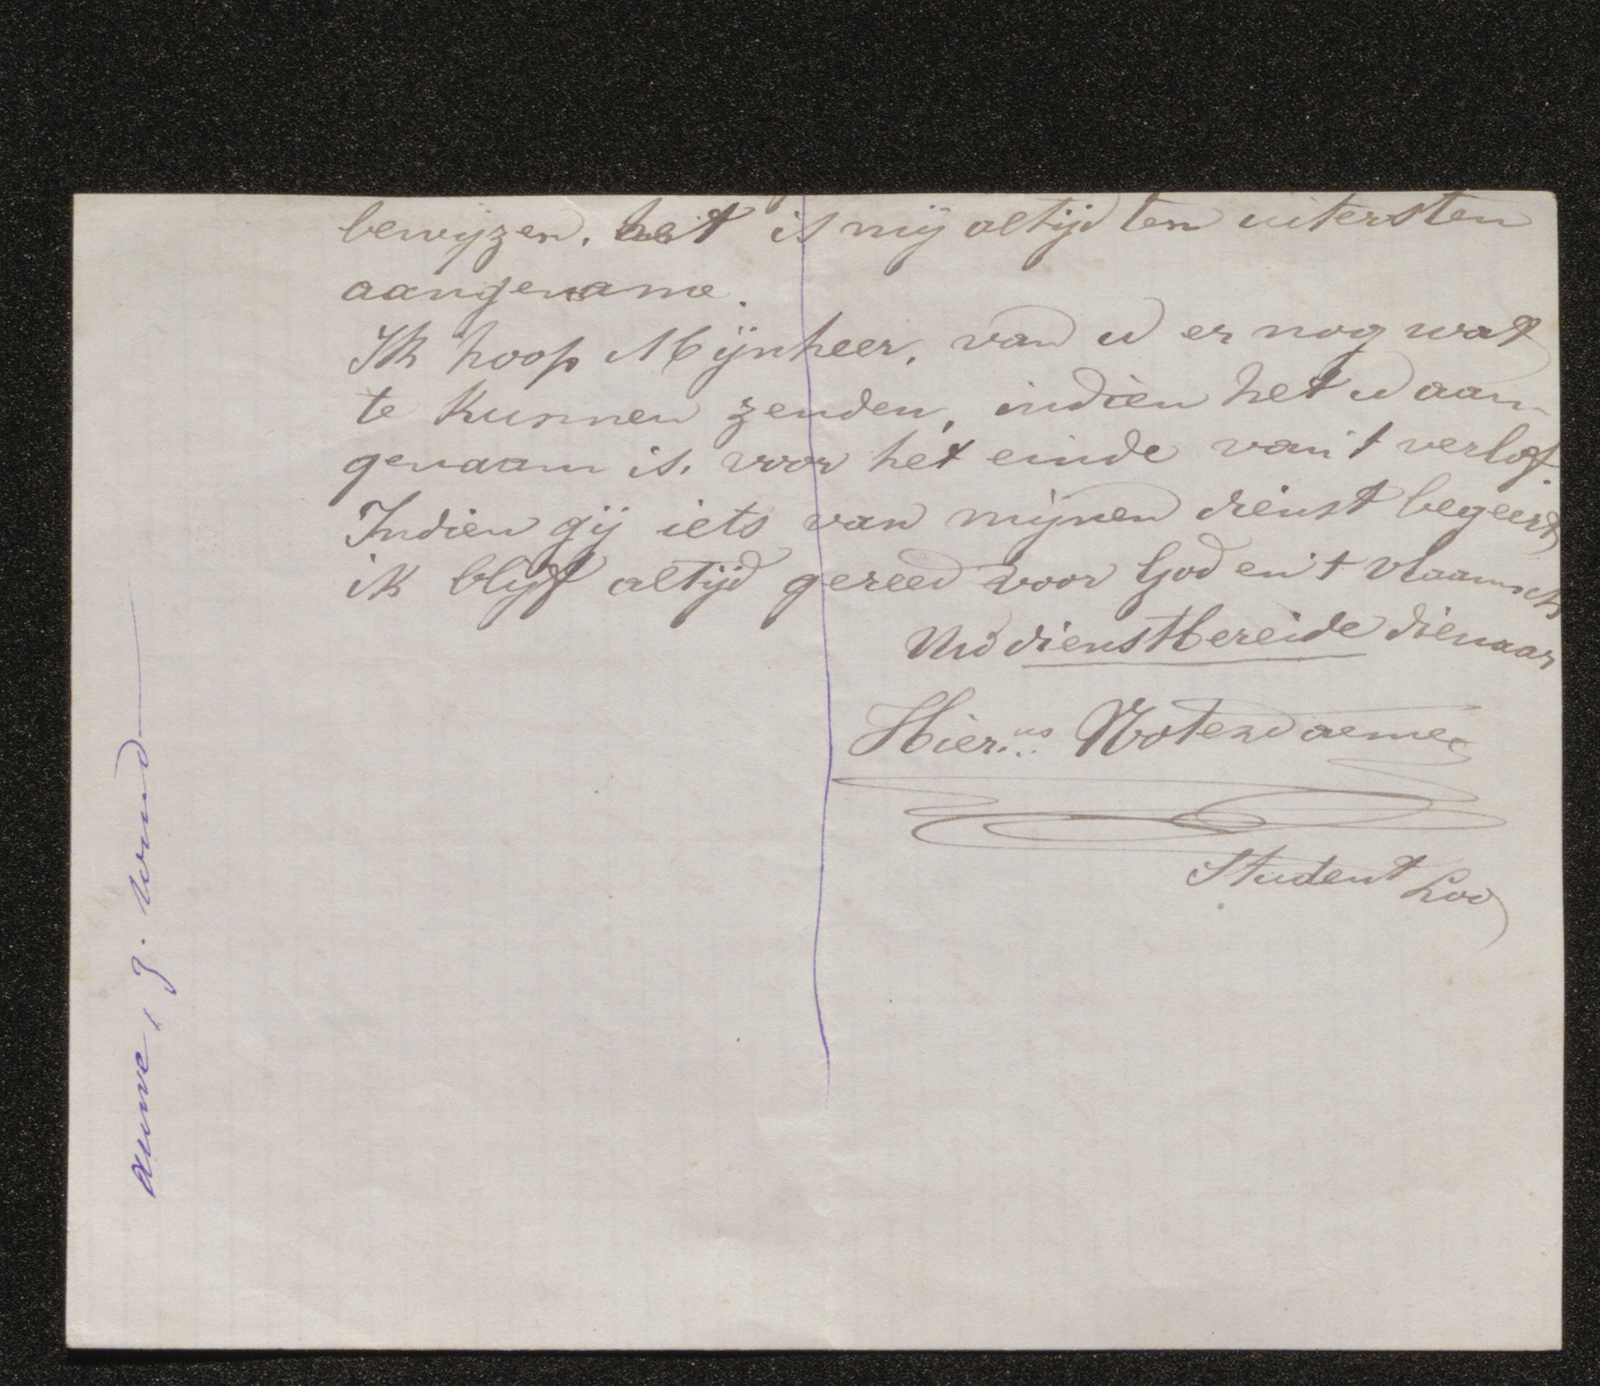 bewyzen. het is mij altijd ten uitersten
aangename.
Ik hoop Mijnheer, van u er nog wat
te kunnen zenden, indien het u aan-
genaam is, voor het einde van 't verlof.
Indien gij iets van mijnen dienst begeert
ik blijf altijd gereed voor God en 't Vlaamsch
Uw dienstbereide dienaar
Hier.us Noterdaeme
Student Loo